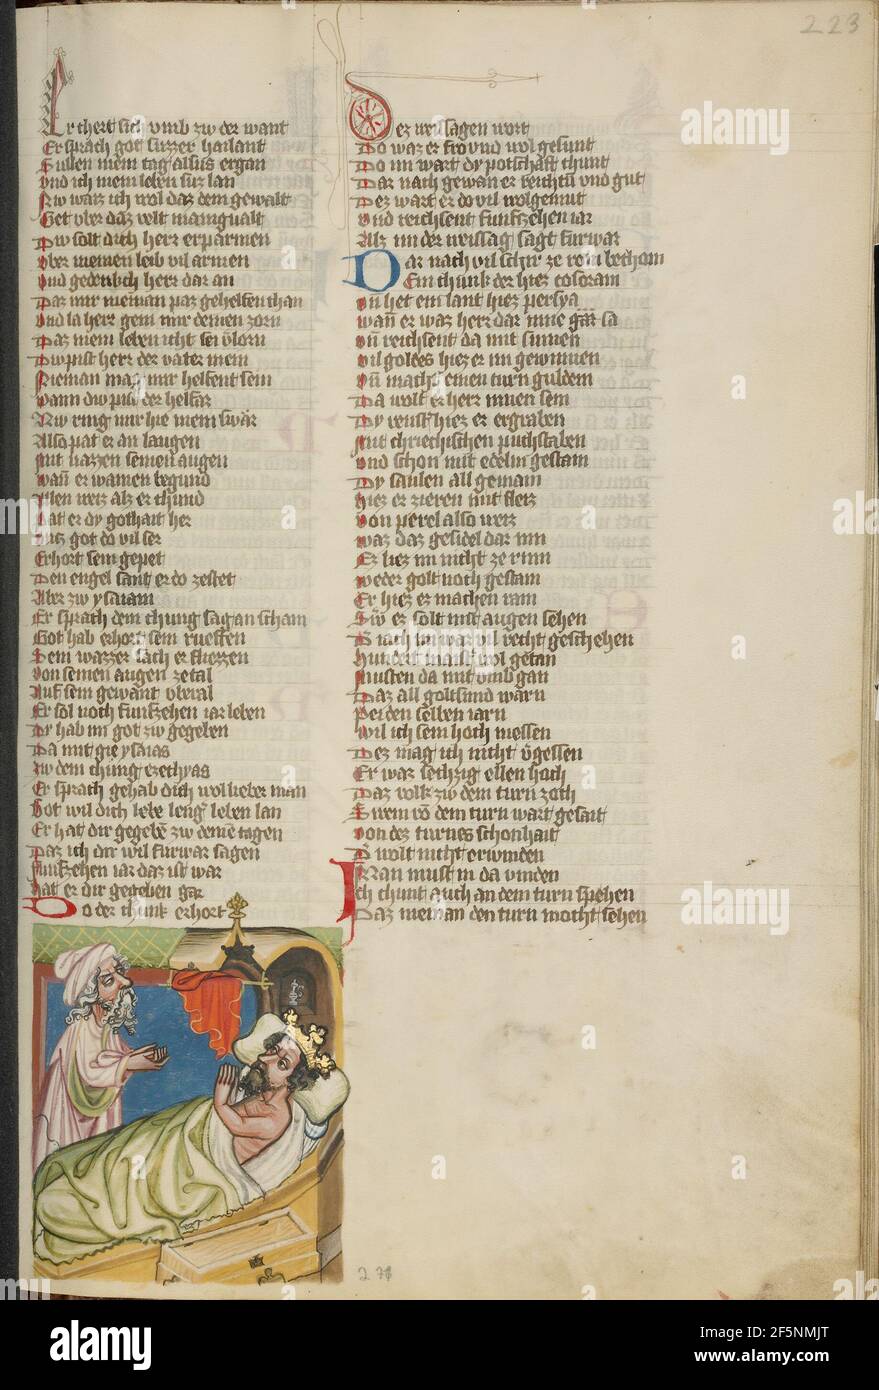 223
Er chert sich vmb zw der want
Er sprach got suzzer hailant
Sullen mein tag alsus ergan
Vnd ich mein leben sus lan
Nw waiz ich wol daz dein gewalt
Get vber daz velt manigualt
Dw solt dich herr erparmen
Vber meinen leib vil armen
Vnd gedench herr dar an
Daz mir nieman paz gehelfen chan
Vnd la herr gein mir deinen zorn
Daz mein leben icht sei vlorn
Dw pist herr der vater mein
Nieman mag mir helfent sein
Wann dw pist der helfär
Nw ring mir hie mein swär
Also pat er an laugen
Mit nazzen seinen augen
Wan er wainen begund
Allen weis alz er chund
Pat er dy gothait her
Vntz got do vil ser
Erhort sein gepet
Den engel sant er do zestet
Aber zw ysaiam
Er sprach dem chung sag an scham
Got hab erhort sein rueffen
Sein wazzer sach er fliezzen
Von seinen augen zetal
Auf sein gewant vberal
Er sol noch funfzehen iar leben
Dy hab im got zw gegeben
Da mit gie ysaias
Zw dem chung ezechyas
Er sprach gehab dich wol lieber man
Got wil dich lebe leng leben lan
Er hat dir gegebe zw deine tagen
Daz ich dir wil furwar sagen
Funfzehen iar daz ist war
Hat er dir gegeben gar
Do der chunk erhort
Dez weissagen wort
Do waz er fro vnd wol gesunt
Do im wart dy potschaft chunt
Dar nach gewan er reichtu vnd gut
Dez wart er do vil wolgemut
Vnd reichsent funfzehen iar
Alz im der weissag sagt furwar
Dar nach vil schir ze rom bechom
Ein chunk der hiez cosoram
Vn het ein lant hiez persya
Wan er waz herr dar inne gar sa
Vn reichsent da mit sinnen
Vil goldes hiez er im gewinnen
Vn macht einen turn guldein
Da wolt er herr innen sein
Dy venst hiez er ergraben
Mit chriechischen puchstaben
Vnd schon mit edelm gestain
Dy saulen all gemain
Hiez er zieren mit fleiz
Von perel also weiz
Waz daz gesidel dar inn
Ez liez im nicht ze rinn
Weder golt noch gestain
Er hiez ez machen rain
Sw er solt mit augen sehen
Hundert maist wol getan
Musten da mit vmb gan
Daz all goltsmid warn
Pei den selben iarn
Wil ich sein hoch messen
Dez mag ich nicht vgessen
Er war sechzig ellen hoch
Daz volk zw dem turn zoch
Swem vo dem turn wart gesait
Von dez turnes schonhait
D wolt nicht erwinden
Man must in da vinden
Ich chunt auch an dem turn spehen
Daz nieman den turn mocht sehen
271
alamy
Image ID: 2F5NMJT
www.alamy.com